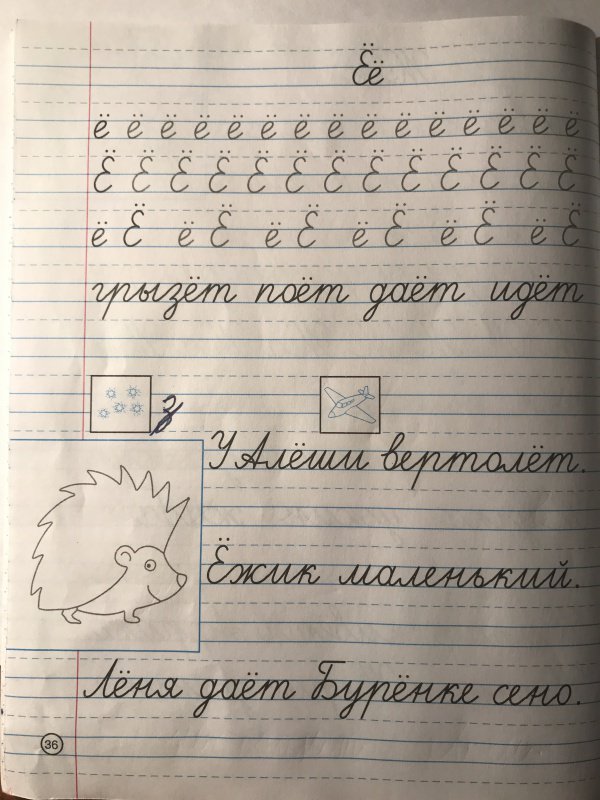 Ёё
ё ё ё ё ё ё ё ё ё ё ё ё ё ё ё
Ё Ё Ё Ё Ё Ё Ё Ё Ё Ё Ё Ё Ё
ё Ё ё Ё ё Ё ё Ё ё Ё ё Ё
грызёт поёт даёт идёт
У Алёши вертолёт.
Ёжик маленький.
Лёня даёт Бурёнке сено.
36